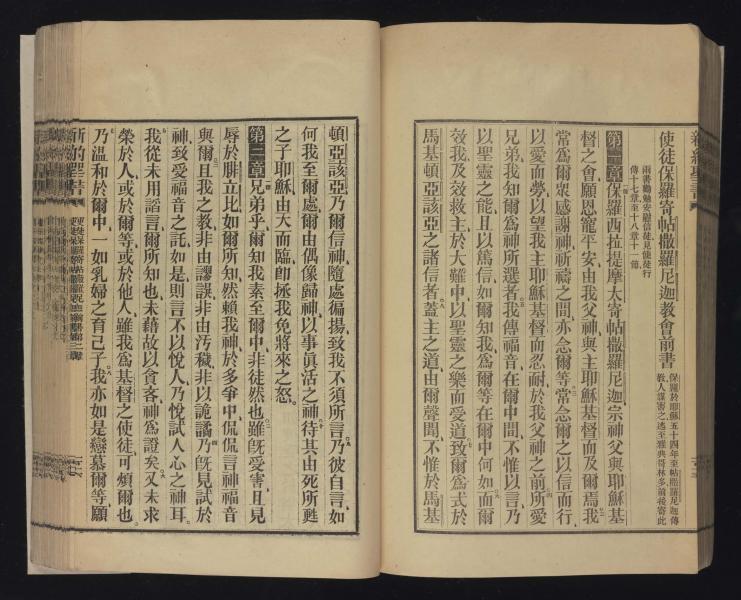 使徒保羅寄帖撒羅尼迦教會前書
保羅於耶穌五十四年至帖撒羅尼迦傳
教人謀害之遂至雅典哥林多前後寄此
兩書勸勉安慰信徒見使徒行
傳十七章至十八章十一節
第一章保羅西拉提摩太寄帖撒羅尼迦宗神父與耶穌基
督之會願恩寵平安由我父神與主耶穌基督而及爾焉我
常爲爾衆感謝神祈禱之間亦念爾等常念爾之以信而行
以愛而勞以望我主耶穌基督而忍耐於我父神之前所愛
兄弟我知爾爲神所選者我傳福音在爾中間不惟以言乃
以聖靈之能且以篤信如爾知我爲爾等在爾中何如而爾
效我及效救主於大難中以聖靈之樂而愛道致爾爲式於
馬基頓亞該亞之諸信者蓋主之道由爾聲聞不惟於馬基
頓亞該亞乃爾信神隨處徧揚致我不須所言乃彼自言如
何我至爾處爾由偶像歸神以事眞活之神待其由死所甦
之子耶穌由天而臨卽拯我免將來之怒
第二章兄弟乎爾知我素至爾中非徒然也雖旣受害且見
辱於腓立比如爾所知然賴我神於多爭中侃侃言神福音
與爾且我之教非由謬誤非由汚穢非以詭譎乃旣見試於
神致愛福音之託如是則言不以悅人乃悅試人心之神耳
我從未用諂言爾所知也未藉故以貪吝神爲證矣又未求
榮於人或於爾等或於他人雖我爲基督之使徒可煩爾也
乃温和於爾中一如乳婦之育己子我亦如是戀慕爾等願
新約聖書